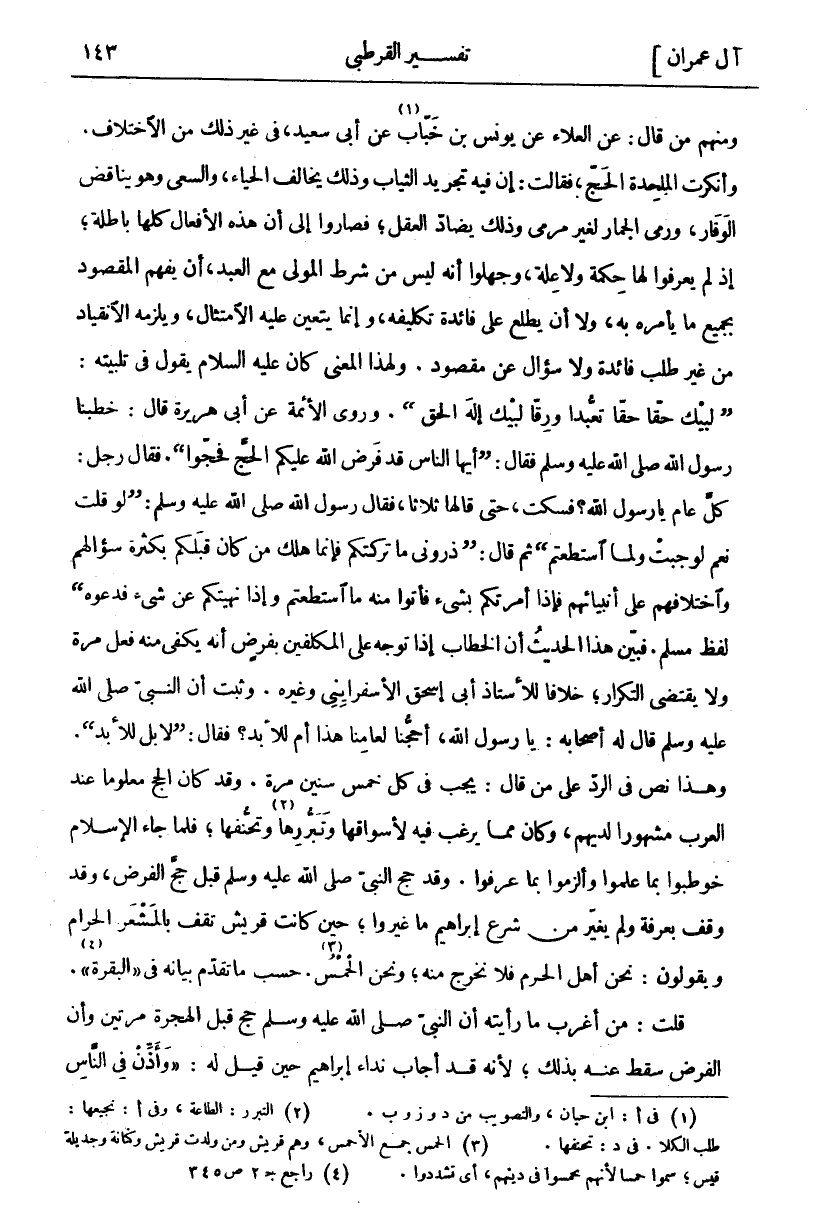 آل عمران ] تفسير القرطبى ١٤٣
ومنهم من قال : عن العلاء عن يونس بن خَبّاب (١) عن أبى سعيد، فى غير ذلك من الآختلاف.
وأنكرت الملحدة الحَجّ ؛ فقالت : إن فيه تجريد الثياب وذلك يخالف الحياء، والسعى وهو يناقض
الوَقَار ، ورمى الجمار لغير مرمى وذلك يضادّ العقل ؛ فصاروا إلى أن هذه الأفعال كلها باطلة ؛
إذ لم يعرفوا لها حِكمة ولا عِلة ، وجهلوا أنه ليس من شرط المولى مع العبد، أن يفهم المقصود
بجميع ما يأمره به، ولا أن يطلع على فائدة تكليفه، و إنما يتعين عليه الآمتثال، ويلزمه الآنقياد
من غير طلب فائدة ولا سؤال عن مقصود . ولهذا المعنى كان عليه السلام يقول فى تلبيته :
” لبيْك حقّا حقّا تعبُّدا ورِقّا لبيْك إلهَ الحق “ . وروى الأئمة عن أبى هريرة قال : خطبنا
رسول الله صلى الله عليه وسلم فقال : ”أيها الناس قد فَرض الله عليكم الحجَّ فحجّوا“. فقال رجل :
كلَّ عام يا رسول الله؟ فسكت، حتى قالها ثلاثا، فقال رسول الله صلى الله عليه وسلم : ”لو قلت
نعم لوجبتْ ولمـا آستطعتم“ ثم قال : ”ذرونى ما تركتكم فإنما هلك من كان قبلَكم بكثرة سؤالهم
وآختلافهم على أنبيائهم فإذا أمرتكم بشىء فأتوا منه ما آستطعتم و إذا نهيتكم عن شىء فدعوه“
لفظ مسلم . فبيّن هذا الحديثُ أن الخطاب إذا توجه على المكلفين بفرضٍ أنه يكفى منه فعل مرة
ولا يقتضى التكرار ؛ خلافا للأستاذ أبى إسحق الأسفراينِى وغيره . وثبت أن النـبىّ صلى الله
عليه وسلم قال له أصحابه : يا رسول الله، أحجُّنا لعامِنا هذا أم للأبد؟ فقال : ”لا بل للأبد“.
وهـذا نص فى الردّ على من قال : يجب فى كل خمس سنين مرة . وقد كان الحج معلوما عند
العرب مشهورا لديهم، وكان ممـا يرغب فيه لأسواقها وتَبَرُّرِها (٢) وتحَنُّفها ؛ فلما جاء الإسـلام
خوطبوا بما علموا وألزموا بما عرفوا . وقد حج النبىّ صلى الله عليه وسلم قبل حجّ الفرض، وقد
وقف بعرفة ولم يغيّر من شرع إبراهيم ما غيروا ؛ حين كانت قريش تقف بالمَشْعَر الحرام
ويقولون : نحن أهل الحرم فلا نخرج منه ؛ ونحن الْحُمْسُ (٣) . حسب ما تقدّم بيانه فى «البقرة» (٤) .
قلت : من أغرب ما رأيته أن النبىّ صـلى الله عليه وسـلم حج قبل الهجرة مرتين وأن
الفرض سقط عنـه بذلك ؛ لأنه قـد أجاب نداء إبراهيم حين قيـل له : «وَأَذِّنْ فِي النَّاسِ
(١) فى أ : ابن حيان ، والتصويب من د و ز و ب . (٢) التبرر : الطاعة ، وفى أ : نجيعها :
طلب الكلا . فى د : تحنفها . (٣) الحمس جمع الأحمس، وهم قريش ومن ولدت قريش وكنانة وجديلة
قيس ؛ سموا حمسا لأنهم تحمسوا فى دينهم، أى تشددوا . (٤) راجع ج ٢ ص ٣٤٥